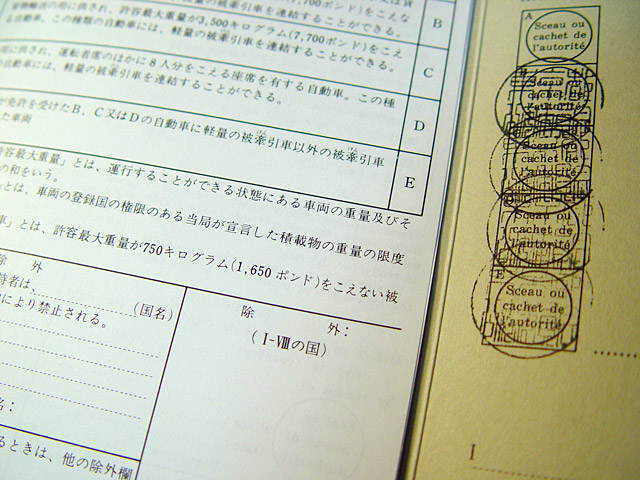 許容最大重量が3,500キログラム(7,700ポンド)をこえ
る自動車。この種類の自動車には、軽量の被牽引車を連結することができる。
B
用に供され、運転者席のほかに8人分をこえる座席を有する自動車。この種
には、軽量の被牽引車を連結することができる。
C
免許を受けたB、C又はDの自動車に軽量の被牽引車以外の被牽引車
た車両
けん
けん
D
E
許容最大重量」とは、運行することができる状態にある車両の重量及びそ
の和をいう。
とは、車両の登録国の権限のある当局が宣言した積載物の重量の限度
車」とは、許容最大重量が750キログラム(1,650 ポンド)をこえない被
除 外
持者は、
(国名)
により禁止される。
名:
るときは、他の除外欄
除 外:
(I-Ⅷの国)
A
Sceau ou
cachet de
l'autorité
Sceau ou
cachet de
l'autorité
Sceau ou
cachet de
l'autorité
Sceau ou
cachet de
l'autorité
E
Sceau ou
cachet de
l'autorité
I